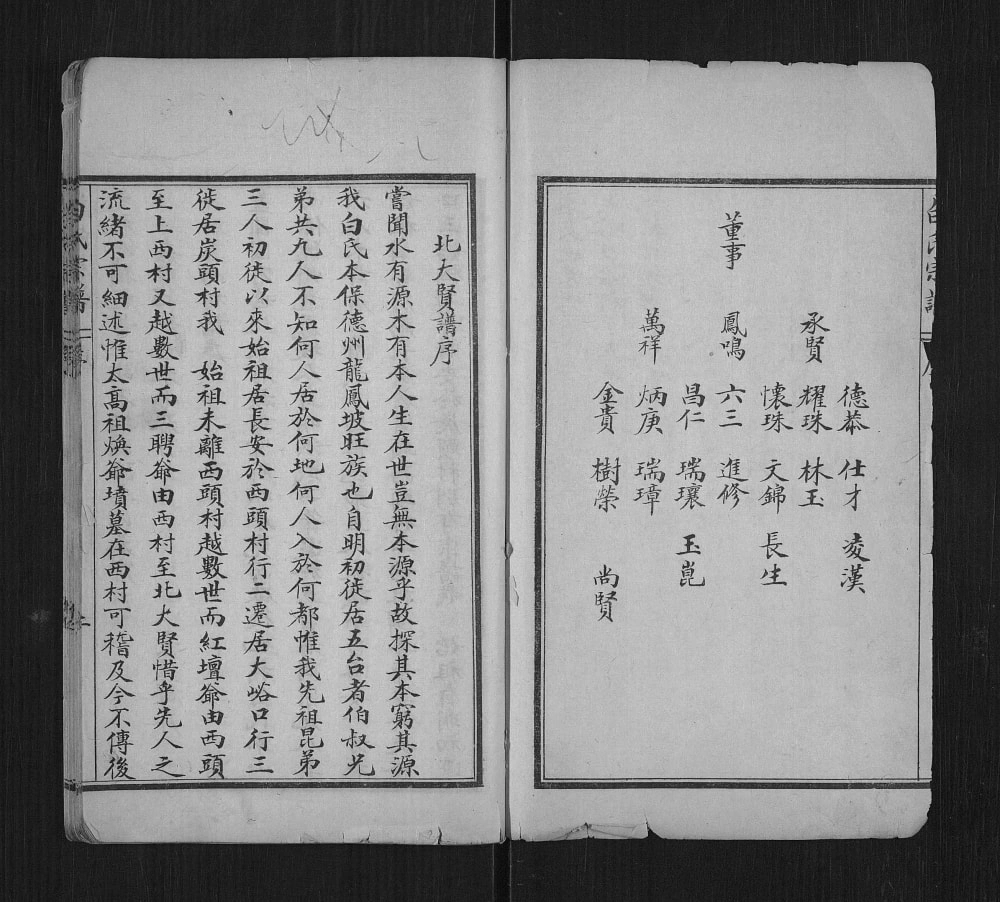 德恭 仕才 凌漢
承賢 耀珠 林玉
懷珠 文錦 長生
董事 鳳鳴 六三 進修
昌仁 瑞瓖 玉崑
萬祥 炳庚 瑞璋
金貴 樹榮 尚賢
北大賢譜序
嘗聞水有源木有本人生在世豈無本源乎故探其本窮其源
我白氏本保德州龍鳳坡旺族也自明初徙居五台者伯叔兄
弟共九人不知何人居於何地何人入於何都惟我先祖昆弟
三人初徙以來始祖居長安於西頭村行二遷居大峪口行三
徙居炭頭村我 始祖未離西頭村越數世而紅壇爺由西頭
至上西村又越數世而三聘爺由西村至北大賢惜乎先人之
流緒不可細述惟太高祖煥爺墳墓在西村可稽及今不傳後
白氏宗譜